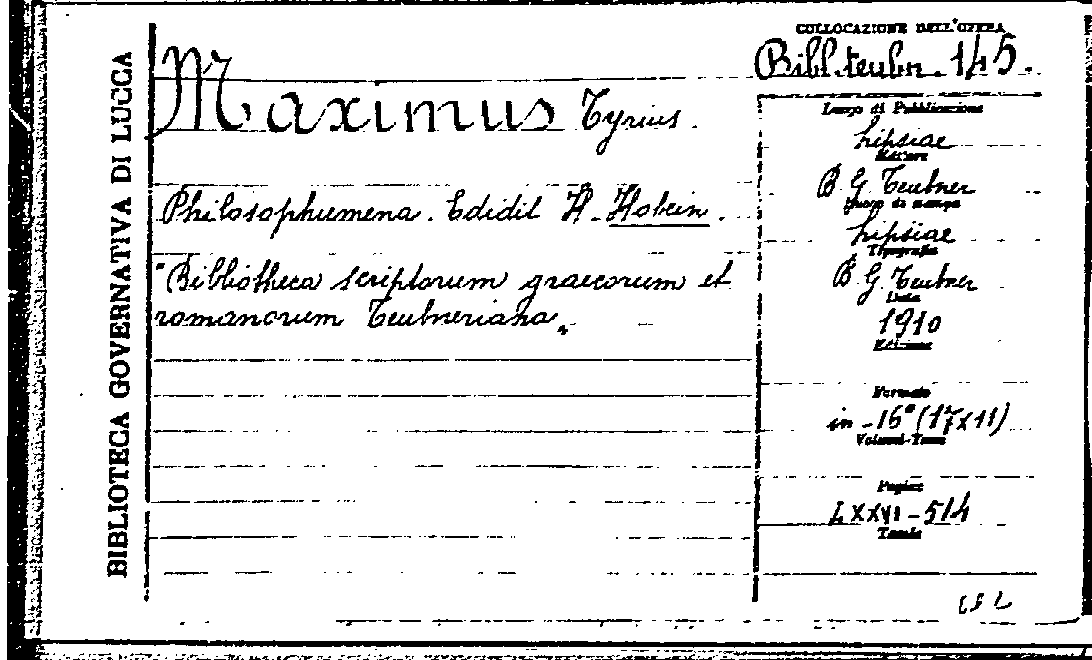 BIBLIOTECA GOVERNATIVA DI LUCCA
COLLOCAZIONE DELL'OPERA
Bibl. teubn. 145.
Maximus Tyrius.
Philosophumena. Edidit H. Hobein.
"Bibliotheca scriptorum graecorum et
romanorum Teubneriana„
Luogo di Pubblicazione
Lipsiae
Editore
B G Teubner
Luogo di stampa
Lipsiae
Tipografia
B G Teubner
Data
1910
Edizione
Formato
in-16° (17x11)
Volumi-Tomi
Pagine
LXXVI-514
Tavole